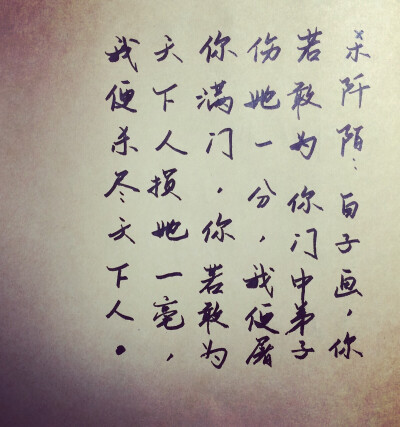 杀阡陌：白子画，你
若敢为你门中弟子
伤她一分，我便屠
你满门，你若敢为
天下人损她一毫，
我便杀尽天下人。